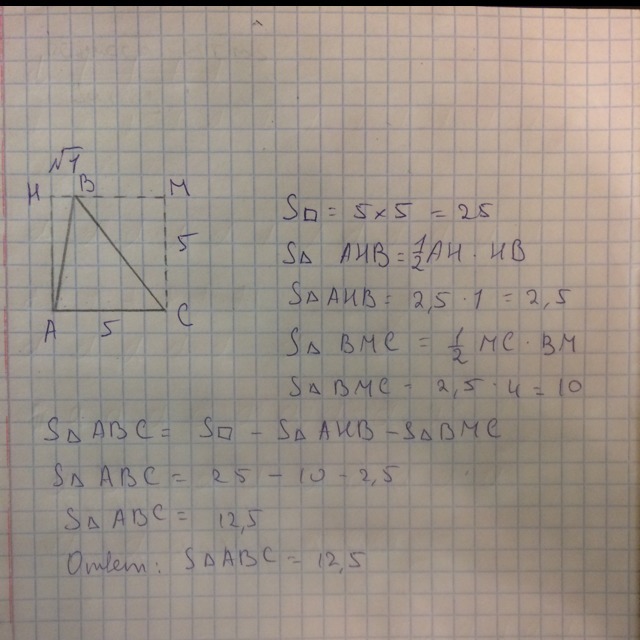 √1
H B M
5
A 5 C
S□ = 5×5 = 25
S△ AHB = 1/2 AH · HB
S△ AHB = 2,5 · 1 = 2,5
S△ BMC = 1/2 MC · BM
S△ BMC = 2,5 · 4 = 10
S△ ABC = S□ - S△ AHB - S△ BMC
S△ ABC = 25 - 10 - 2,5
S△ ABC = 12,5
Ответ: S△ ABC = 12,5